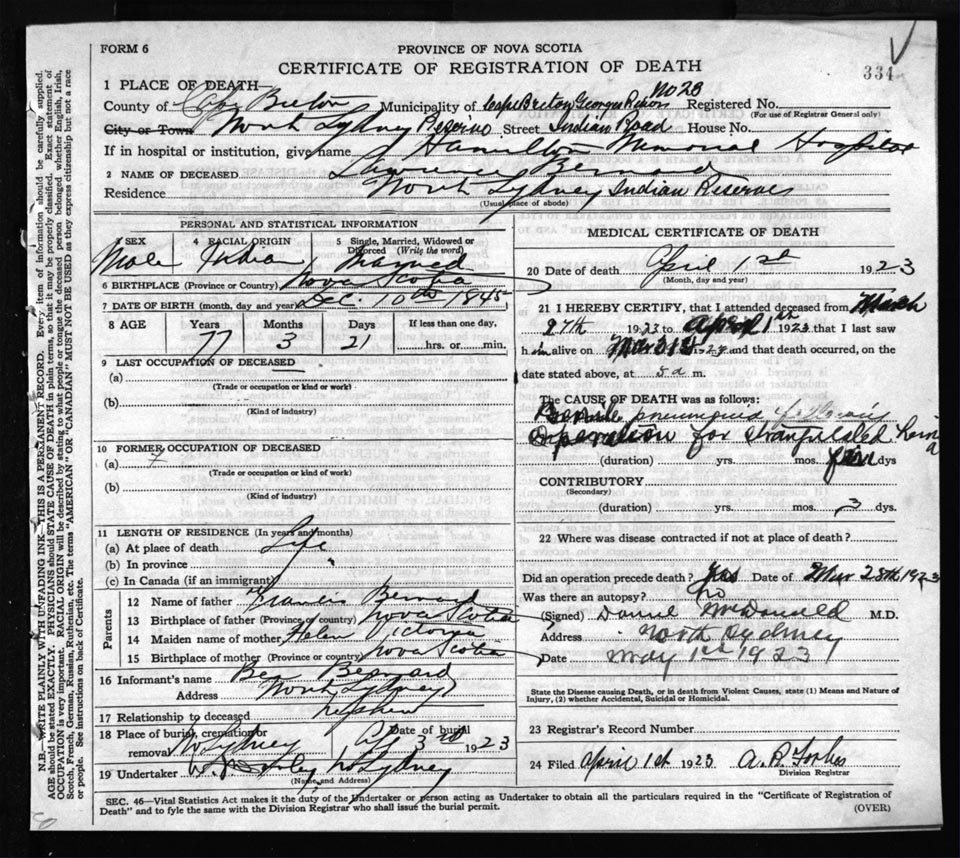 FORM 6
PROVINCE OF NOVA SCOTIA
CERTIFICATE OF REGISTRATION OF DEATH
334
1 PLACE OF DEATH—
County of Cape Breton Municipality of Cape Breton Georges River No 28 Registered No.
(For use of Registrar General only)
City or Town North Sydney Reserve Street Indian Road House No.
If in hospital or institution, give name Hamilton Memorial Hospital
2 NAME OF DECEASED Lawrence Bernard
Residence North Sydney Indian Reserves
(Usual place of abode)
PERSONAL AND STATISTICAL INFORMATION
3 SEX 4 RACIAL ORIGIN 5 Single, Married, Widowed or Divorced (Write the word)
Male Married
6 BIRTHPLACE (Province or Country) Nova Scotia
7 DATE OF BIRTH (month, day and year) Dec. 10th 1845
8 AGE Years Months Days If less than one day,
77 3 21 hrs. or min.
9 LAST OCCUPATION OF DECEASED
(a)
(Trade or occupation or kind or work)
(b)
(Kind of industry)
10 FORMER OCCUPATION OF DECEASED
(a)
(Trade or occupation or kind of work)
(b)
(Kind of industry)
11 LENGTH OF RESIDENCE (In years and months)
(a) At place of death Life
(b) In province
(c) In Canada (if an immigrant)
Parents
12 Name of father Francis Bernard
13 Birthplace of father (Province or country) Nova Scotia
14 Maiden name of mother Helen Victoria
15 Birthplace of mother (Province or country) Nova Scotia
16 Informant's name Ben Bernard
Address North Sydney
17 Relationship to deceased nephew
18 Place of burial, cremation or removal N Sydney Date of burial Ap 3rd 1923
19 Undertaker N Sydney
(Name and Address)
MEDICAL CERTIFICATE OF DEATH
20 Date of death April 1st 1923
(Month, day and year)
21 I HEREBY CERTIFY, that I attended deceased from March
27th 1923 to April 1th 1923 that I last saw
him alive on Mar 31st and that death occurred, on the
date stated above, at 5 a m.
The CAUSE OF DEATH was as follows:
pneumonia following
Operation for strangulated hernia
(duration) yrs. mos. dys
CONTRIBUTORY
(Secondary)
(duration) yrs. mos. 3 dys.
22 Where was disease contracted if not at place of death?
Did an operation precede death? Yes Date of Mar 28th 1923
Was there an autopsy? no
(Signed) Daniel McDonald M.D.
Address North Sydney
Date May 1st 1923
State the Disease causing Death, or in death from Violent Causes, state (1) Means and Nature of
Injury, (2) whether Accidental, Suicidal or Homicidal.
23 Registrar's Record Number
24 Filed April 1st 1923 A. R. Forbes
Division Registrar
SEC. 46—Vital Statistics Act makes it the duty of the Undertaker or person acting as Undertaker to obtain all the particulars required in the "Certificate of Registration of
Death" and to fyle the same with the Division Registrar who shall issue the burial permit.
(OVER)
N.B.—WRITE PLAINLY WITH UNFADING INK—THIS IS A PERMANENT RECORD. Every item of information should be carefully supplied.
AGE should be stated EXACTLY. PHYSICIANS should STATE CAUSE OF DEATH in plain terms, so that it may be properly classified. Exact statement of
OCCUPATION is very important. RACIAL ORIGIN will be described by stating to what people or tongue the deceased person belonged whether English, Irish,
Scotch, French, German, Russian, Ruthenian, etc. The terms "AMERICAN" OR "CANADIAN" MUST NOT BE USED as they express citizenship but not a race
or people. See instructions on back of Certificate.